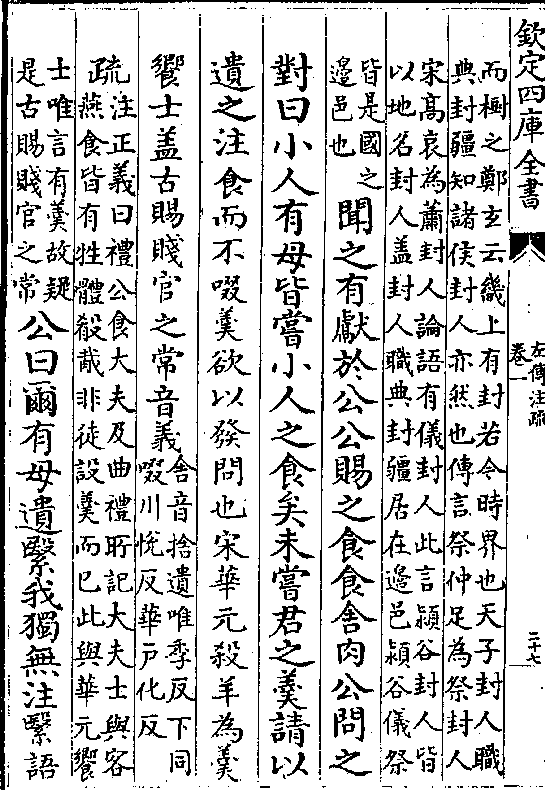 欽定四庫全書
左傳注疏
卷一
二十七
而樹之鄭玄云畿上有封若今時界也天子封人職
典封疆知諸侯封人亦然也傳言祭仲足為祭封人
宋髙哀為蕭封人論語有儀封人此言潁谷封人皆
以地名封人盖封人職典封疆居在邉邑潁谷儀祭
皆是國之
邉邑也
聞之有獻於公公賜之食食舍肉公問之
對曰小人有母皆嘗小人之食矣未嘗君之羮請以
遺之注食而不啜羮欲以發問也宋華元殺羊為羮
饗士盖古賜賤官之常音義
舍音捨遺唯季反下同
啜川悦反華戸化反
疏
注正義曰禮公食大夫及曲禮所記大夫士與客
燕食皆有牲體殽胾非徒設羮而已此與華元饗
士唯言有羮故疑
是古賜賤官之常
公曰爾有母遺繄我獨無注繄語